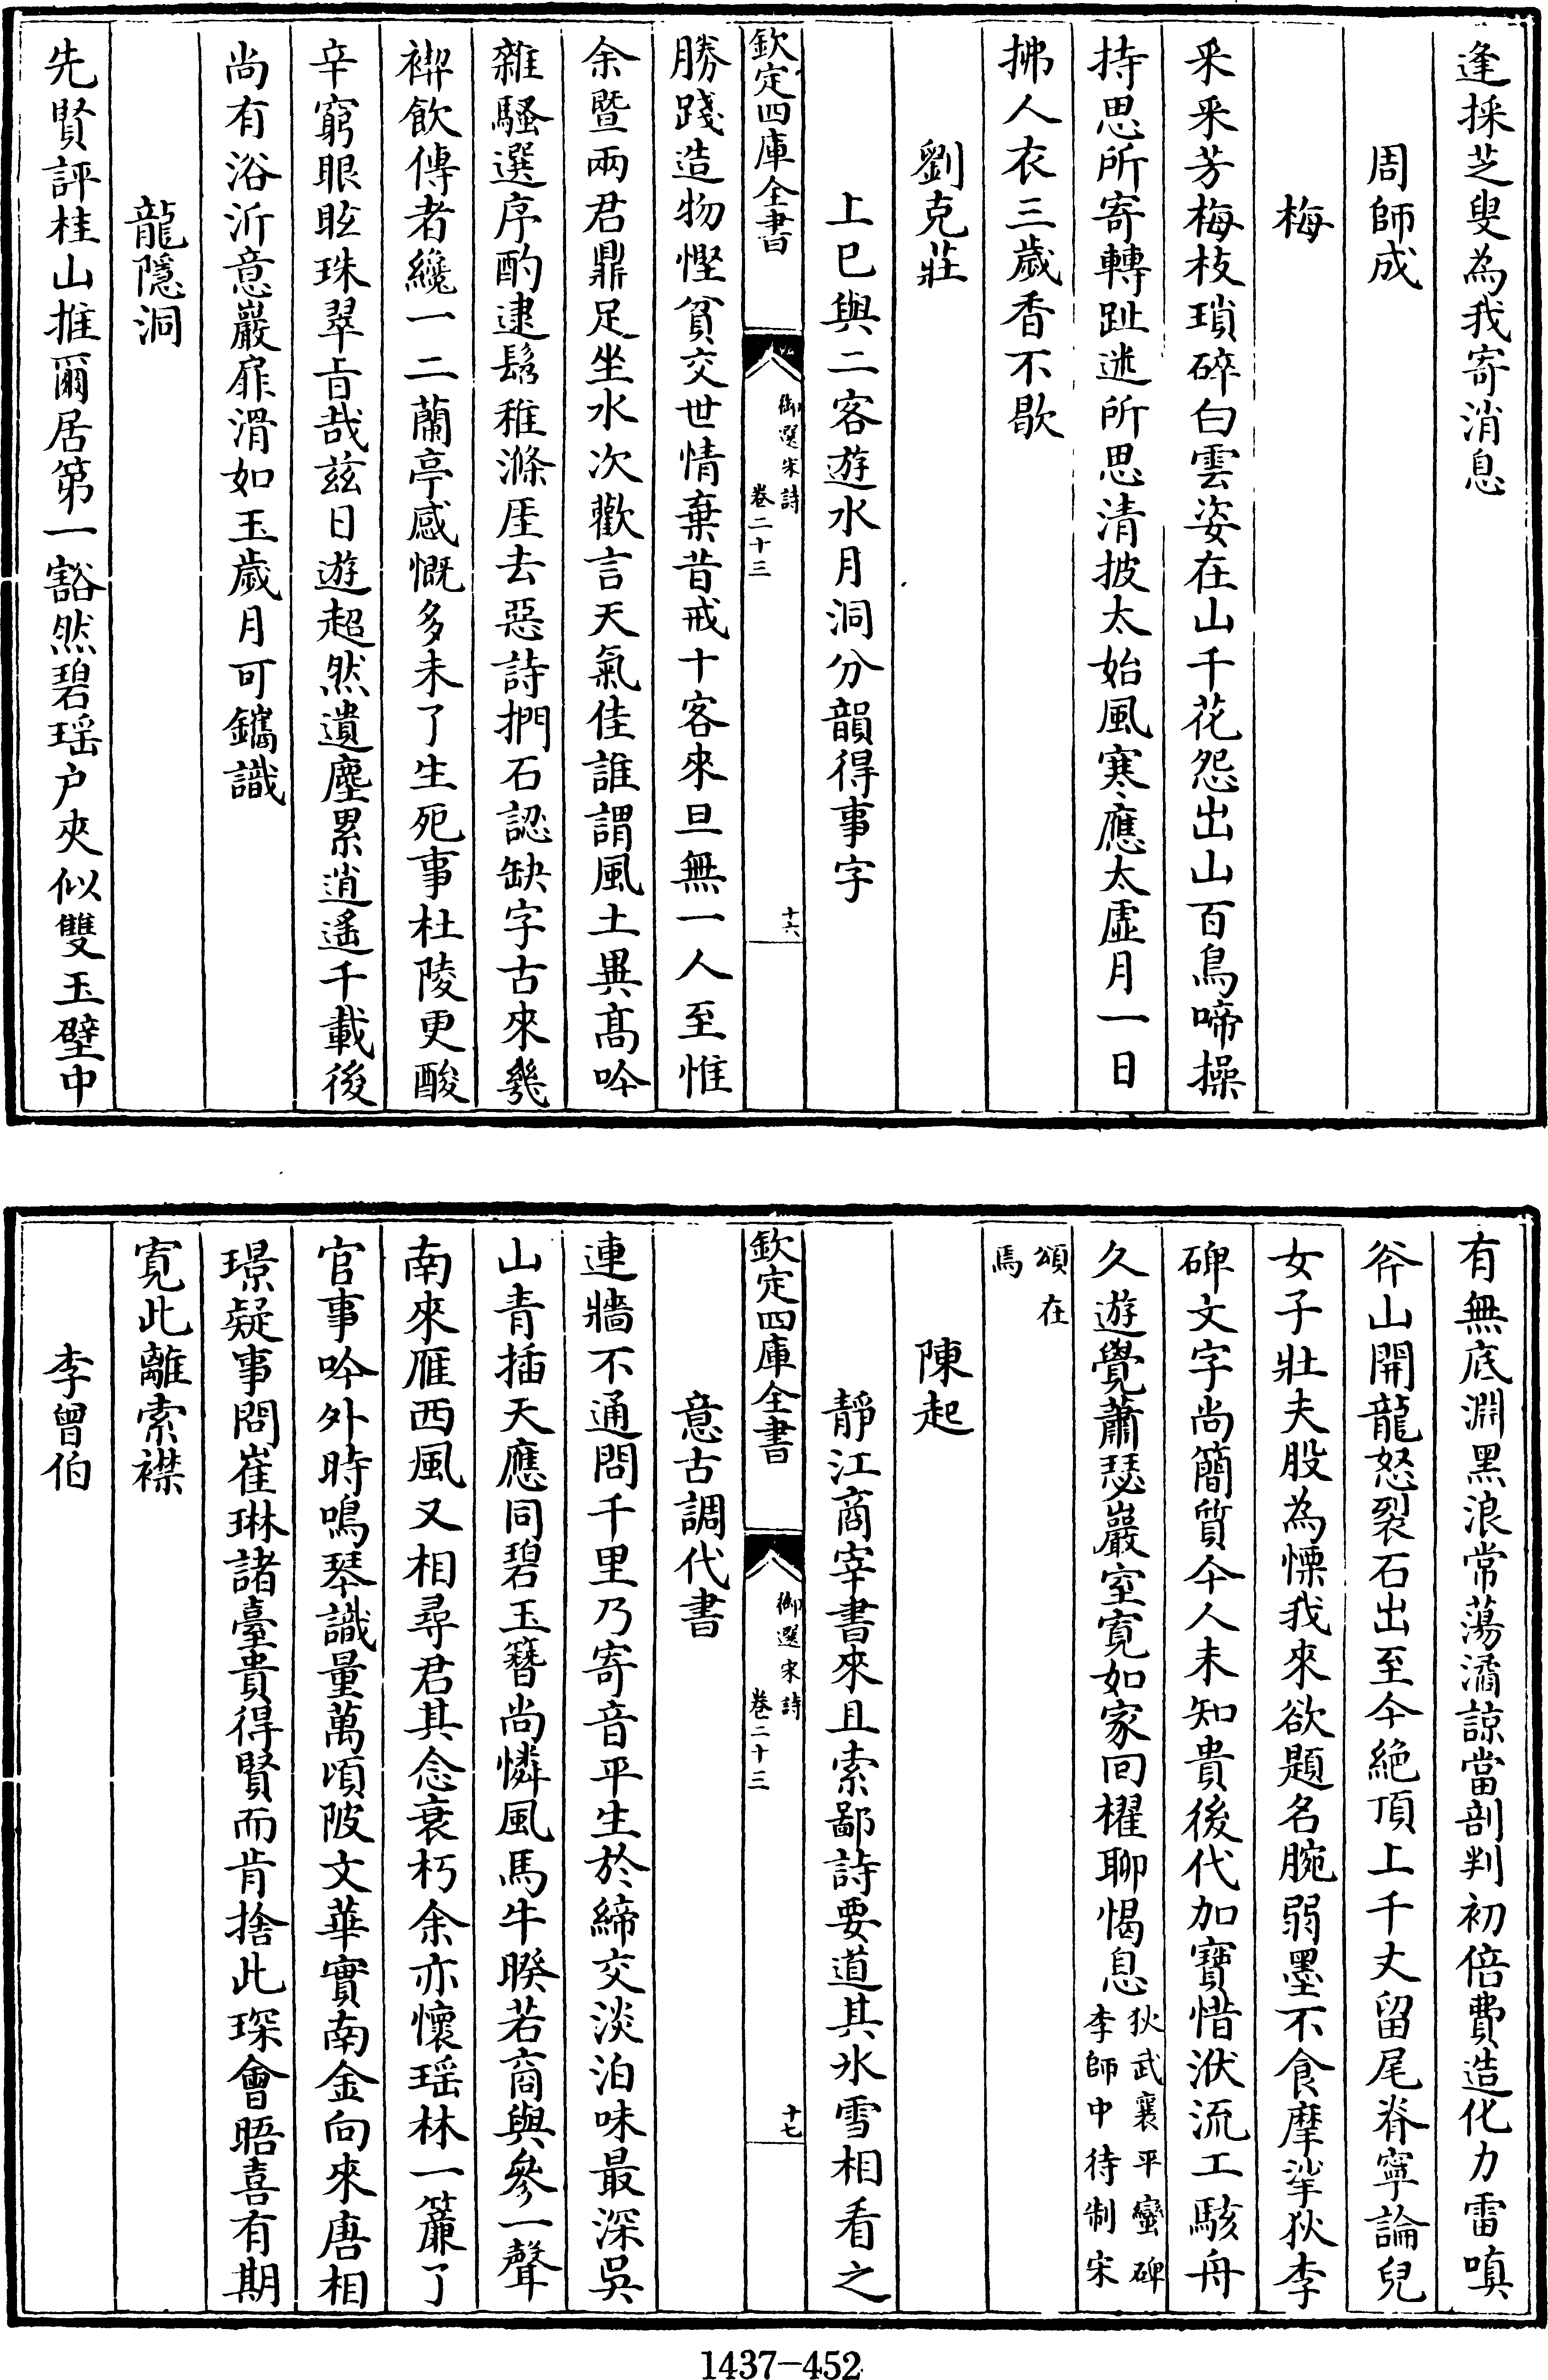 逢採芝叟為我寄消息
周師成
梅
采采芳梅枝瑣碎白雲姿在山千花怨出山百鳥啼操
持思所寄轉趾迷所思清披太始風寒應太虛月一日
拂人衣三歲香不歇
劉克莊
上巳與二客遊水月洞分韻得事字
欽定四庫全書
御選宋詩
卷二十三
十六
勝踐造物慳貧交世情棄昔戒十客來旦無一人至惟
余暨兩君鼎足坐水次歡言天氣佳誰謂風土異高吟
雜騷選序酌逮髫稚滌厓去惡詩捫石認缺字古來幾
禊飲傳者纔一二蘭亭感慨多未了生死事杜陵更酸
辛窮眼眩珠翠旨哉兹日遊超然遺塵累逍遙千載後
尚有浴沂意巖扉滑如玉歲月可鐫識
龍隱洞
先賢評桂山推爾居第一豁然碧瑶户夾似雙玉壁中
有無底淵黑浪常蕩潏諒當剖判初倍費造化力雷嗔
斧山開龍怒裂石出至今絕頂上千丈留尾脊寧論兒
女子壯夫股為慄我來欲題名腕弱墨不食摩挲狄李
碑文字尚簡質今人未知貴後代加寶惜洑流工駭舟
久遊覺蕭瑟巖室寬如家回櫂聊愒息狄武襄平蠻碑
李師中待制宋
頌在
焉
陳起
靜江商宰書來且索鄙詩要道其氷雪相看之
欽定四庫全書
御選宋詩
卷二十三
十七
意古調代書
連牆不通問千里乃寄音平生於締交淡泊味最深吳
山青插天應同碧玉簪尚憐風馬牛暌若商與參一聲
南來雁西風又相尋君其念衰朽余亦懷瑶林一簾了
官事吟外時鳴琴識量萬頃陂文華實南金向來唐相
璟疑事問崔琳諸臺貴得賢而肯捨此琛會晤喜有期
寬此離索襟
李曾伯
1437-452